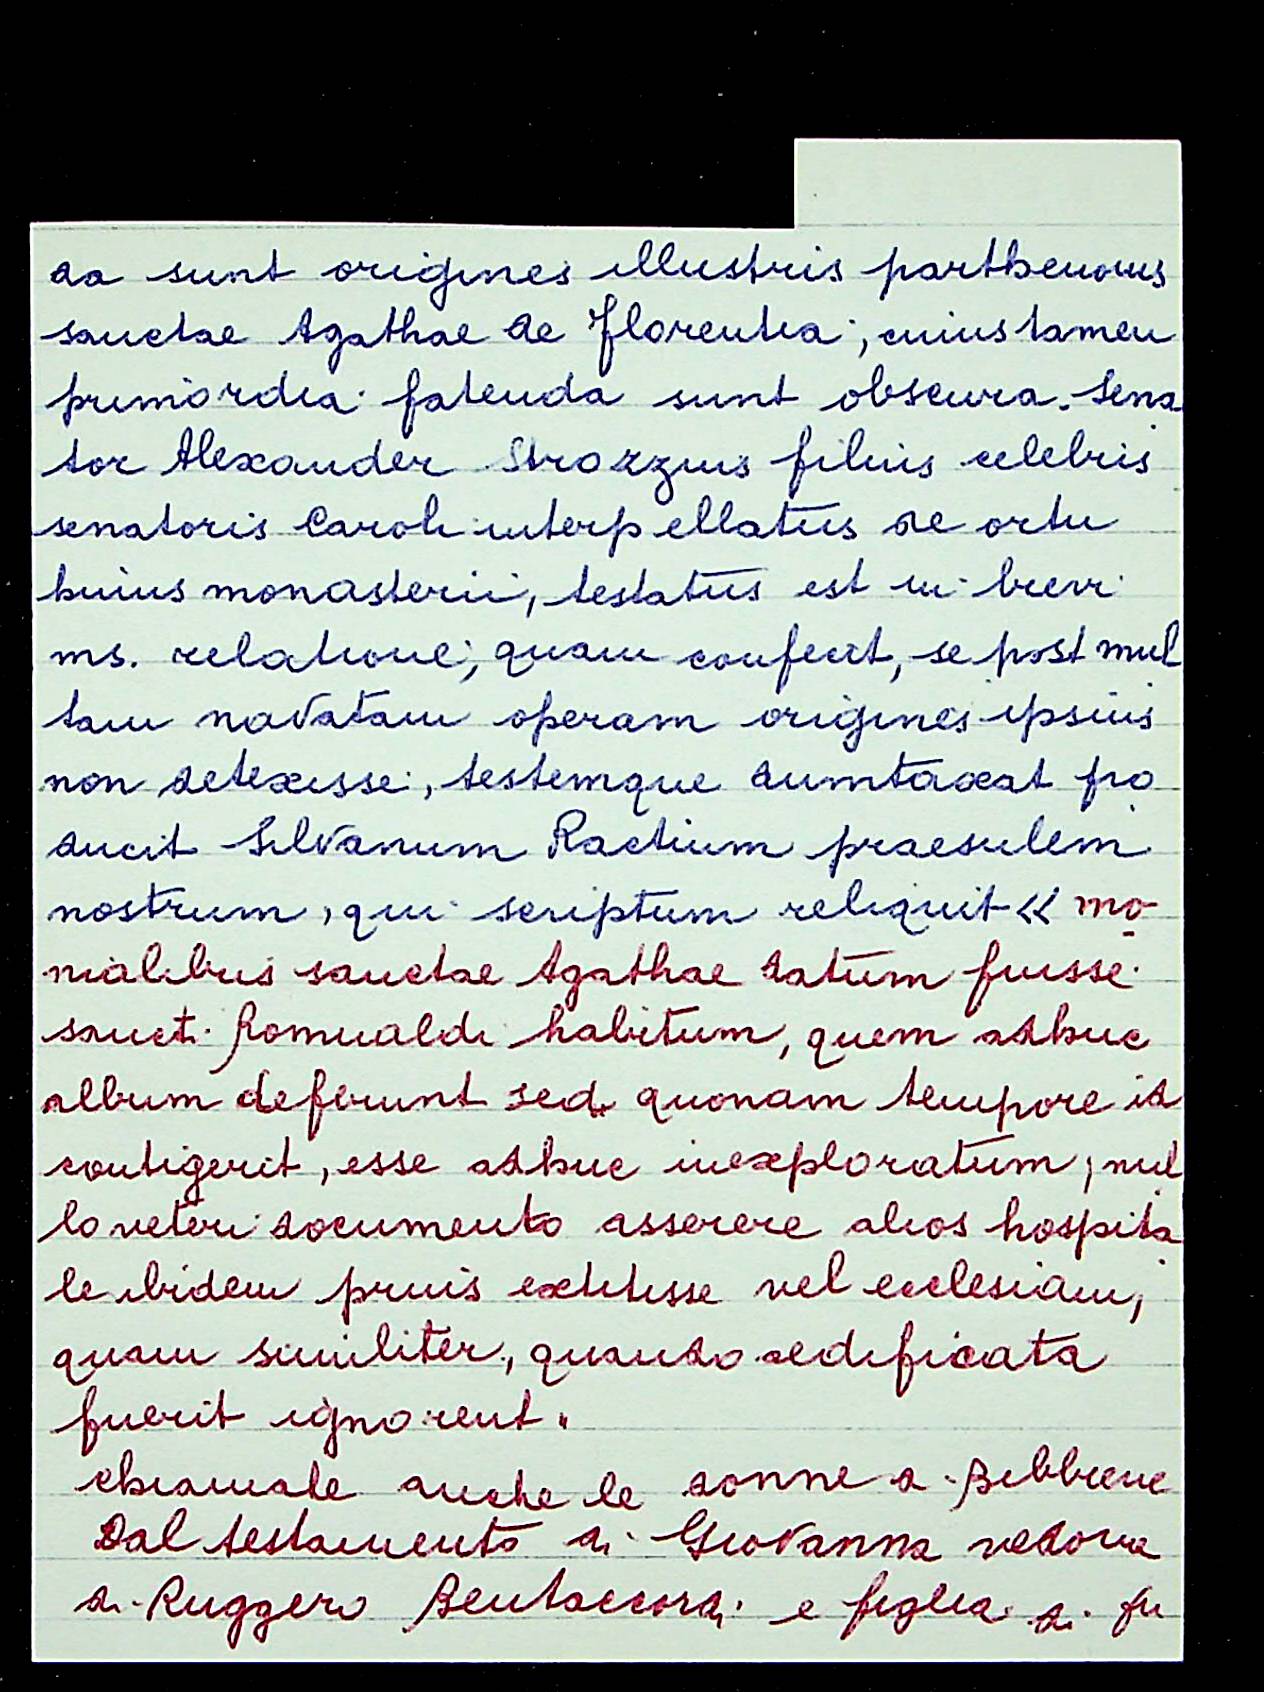 da sunt origines illustris parthenonis
sanctae Agathae de Florentia; cuius tamen
primordia fatenda sunt obscura. Sena
tor Alexander Strozzius filius celebris
senatoris Caroli interpellatus de ortu
huius monasterii, testatus est in brevi
ms. relatione, quam confecit, se post mul
tam navatam operam origines ipsius
non detexisse, testemque dumtaxat pro
ducit Silvanum Ractium praesulem
nostrum, qui scriptum reliquit « mo
nialibus sanctae Agathae datum fuisse
sancti Romualdi habitum, quem adhuc
album deferunt sed quonam tempore id
contigerit, esse adhuc inexploratum; nul
lo veteri documento asserere alios hospita
le ibidem prius extitisse vel ecclesiam,
quam similiter, quando aedificata
fuerit ignorent "
chiamate anche le donne a Bibbiene
Dal testamento di Giovanna vedova
di Ruggero Bentaccordi e figlia di fu